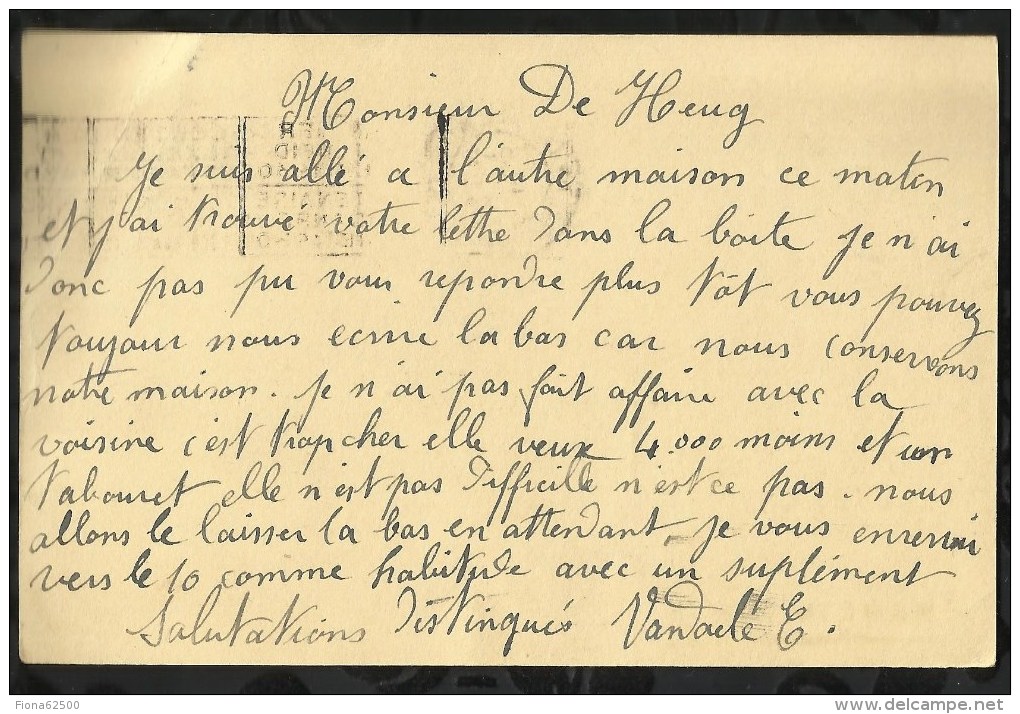 Monsieur De Heug
Je suis allé a l'autre maison ce matin
et j'ai trouvé votre lettre dans la boite je n'ai
donc pas pu vous repondre plus tôt vous pouvez
toujour nous ecrire la bas car nous conservons
notre maison. Je n'ai pas fait affaire avec la
voisine c'est trop cher elle veux 4.000 moins et un
tabouret elle n'est pas difficille n'est ce pas. nous
allons le laisser la bas en attendant. Je vous enverrai
vers le 10 comme habitude avec un suplément
Salutations distingués Vandaele E.
Fiona62500
www.delcampe.net